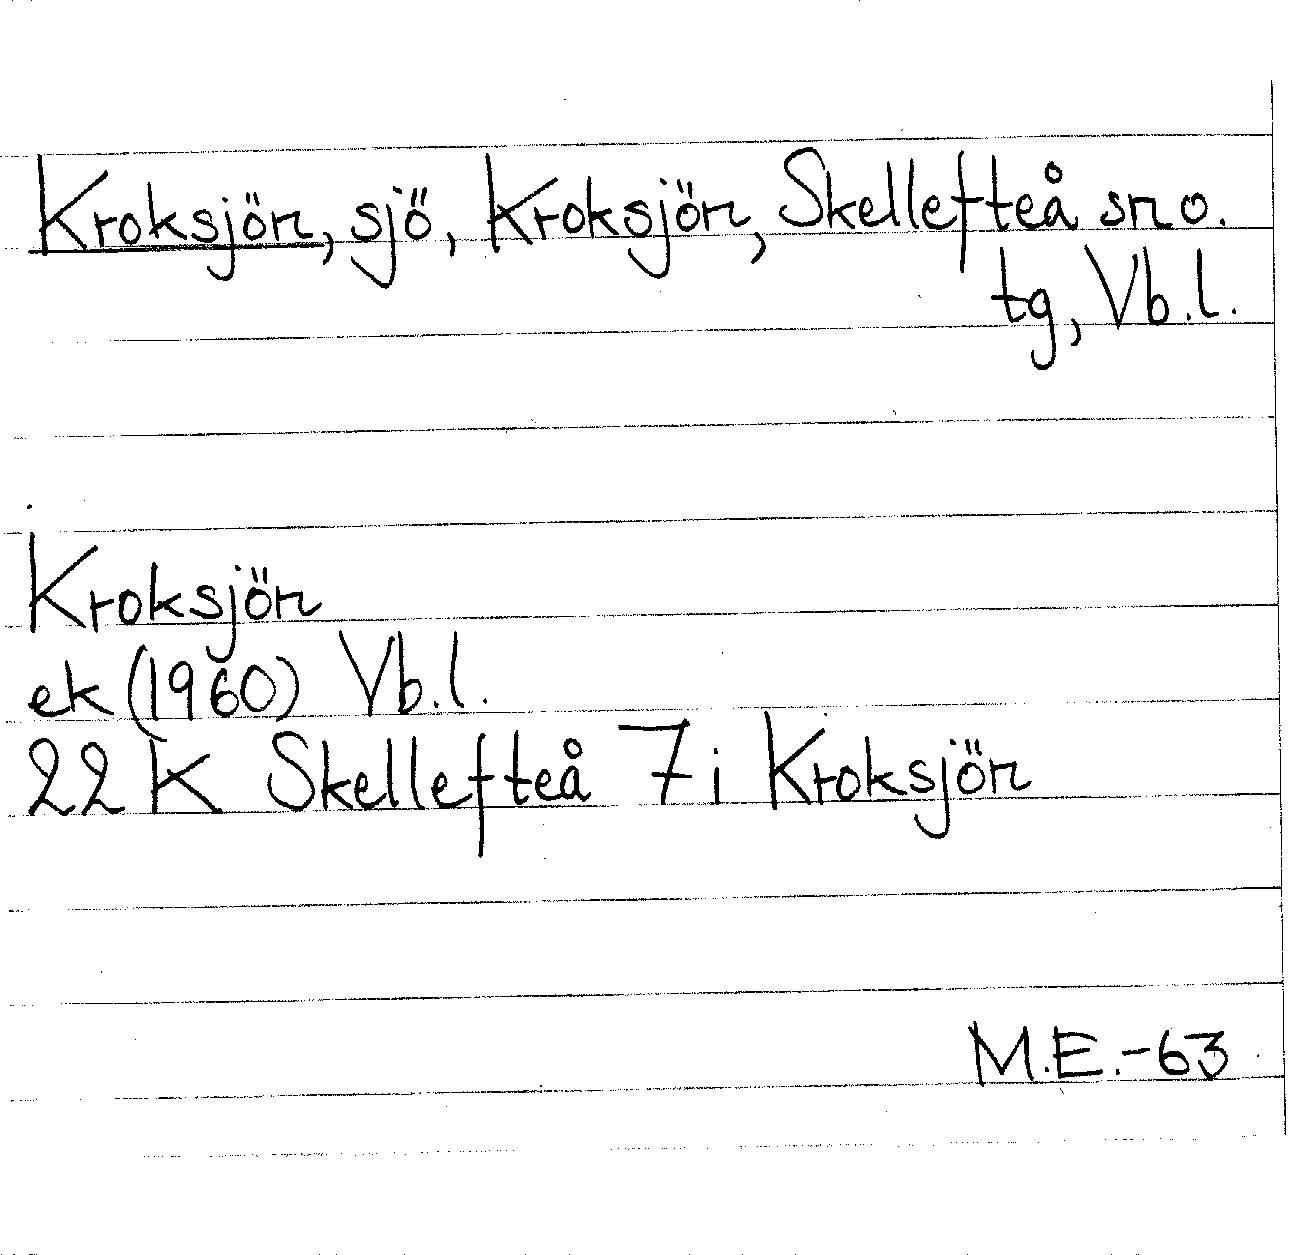 Kroksjön, sjö, Kroksjön, Skellefteå sn o.
tg, Vb.l.
Kroksjön
ek (1960) Vb.l.
22 K Skellefteå 7i Kroksjön
M.E.-63